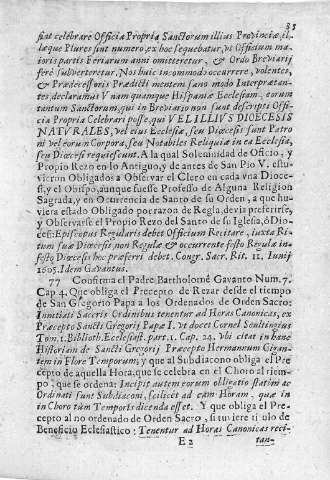 35
sint celebrare Officia Propria Sanctorum illius Provinciæ, il-
læque Plures sint numero, ex hoc sequebatur, vt Officium ma-
ioris partis Feriarum anni omitteretur, & Ordo Breviarij
ferè subverteretur. Nos huic incommodo occurrere, volentes,
& Prædecessoris Prædicti mentem sano modo Interpretan-
tes, declaramus Vnam quamque Hispaniæ Ecclesiam, eorum
tantum Sanctorum, qui in Breviario non sunt descripti Offi-
cia Propria Celebrari posse, qui VEL ILLIVS DIOECESIS
NATVRALES, vel eius Ecclesiæ, seu Diœcesis sunt Patro
ni vel eorum Corpora, seu Notabiles Reliquiæ in ea Ecclesia,
seu Diœcesi requiescunt. A la qual Solemnidad de Oficio, y
Propio Rezo en lo Antiguo, y de antes de San Pio V. estu-
vieron Obligados a Observar el Clero en cada vna Dioce-
si, y el Obispo, aunque fuesse Professo de Alguna Religion
Sagrada, y en Ocurrencia de Santo de su Orden, a que hu-
viera estado Obligado por razon de Regla, devia preferirse,
y Observarse el Propio Rezo del Santo de su Iglesia, ò Dio-
cesi: Episcopus Regularis debet Officium Recitare, iuxta Ri-
tum suæ Diœcesis non Regulæ & occurrente festo Regulæ in
festo Diœcesis hoc præferri debet. Congr. Sacr. Rit. 11. Iunij
1605. Idem Gavantus.
77 Confirma el Padre Bartholomè Gavanto Num. 7.
Cap 4. Que obliga el Precepto de Rezar desde el tiempo
de San Gregorio Papa a los Ordenados de Orden Sacro:
Innitiati Sacris Ordinibus tenentur ad Horas Canonicas, ex
Præcepto Sancti Gregorij Papæ I. vt docet Cornel Scultingius
Tom. 1. Biblioth. Ecclesiast. part. 1. Cap. 24. vbi citat in hanc
Historiam de Sancti Gregorij Præcepto Hermannum Gigan-
tem in Flore Temporum, y que al Subdiacono obliga el Pre-
cepto de aquella Hora, que se celebra en el Choro al tiem-
po, que se ordena: Incipit autem eorum obligatio statim ac
Ordinati sunt Subdiaconi, scilicet ad eam Horam, quæ in
in Choro tum Temporis dicenda esset. Y que obliga el Pre-
cepto al no ordenado de Orden Sacro, si tuviere titulo de
Beneficio Eclesiastico: Tenentur ad Horas Canonicas reci-
E 2 tan-